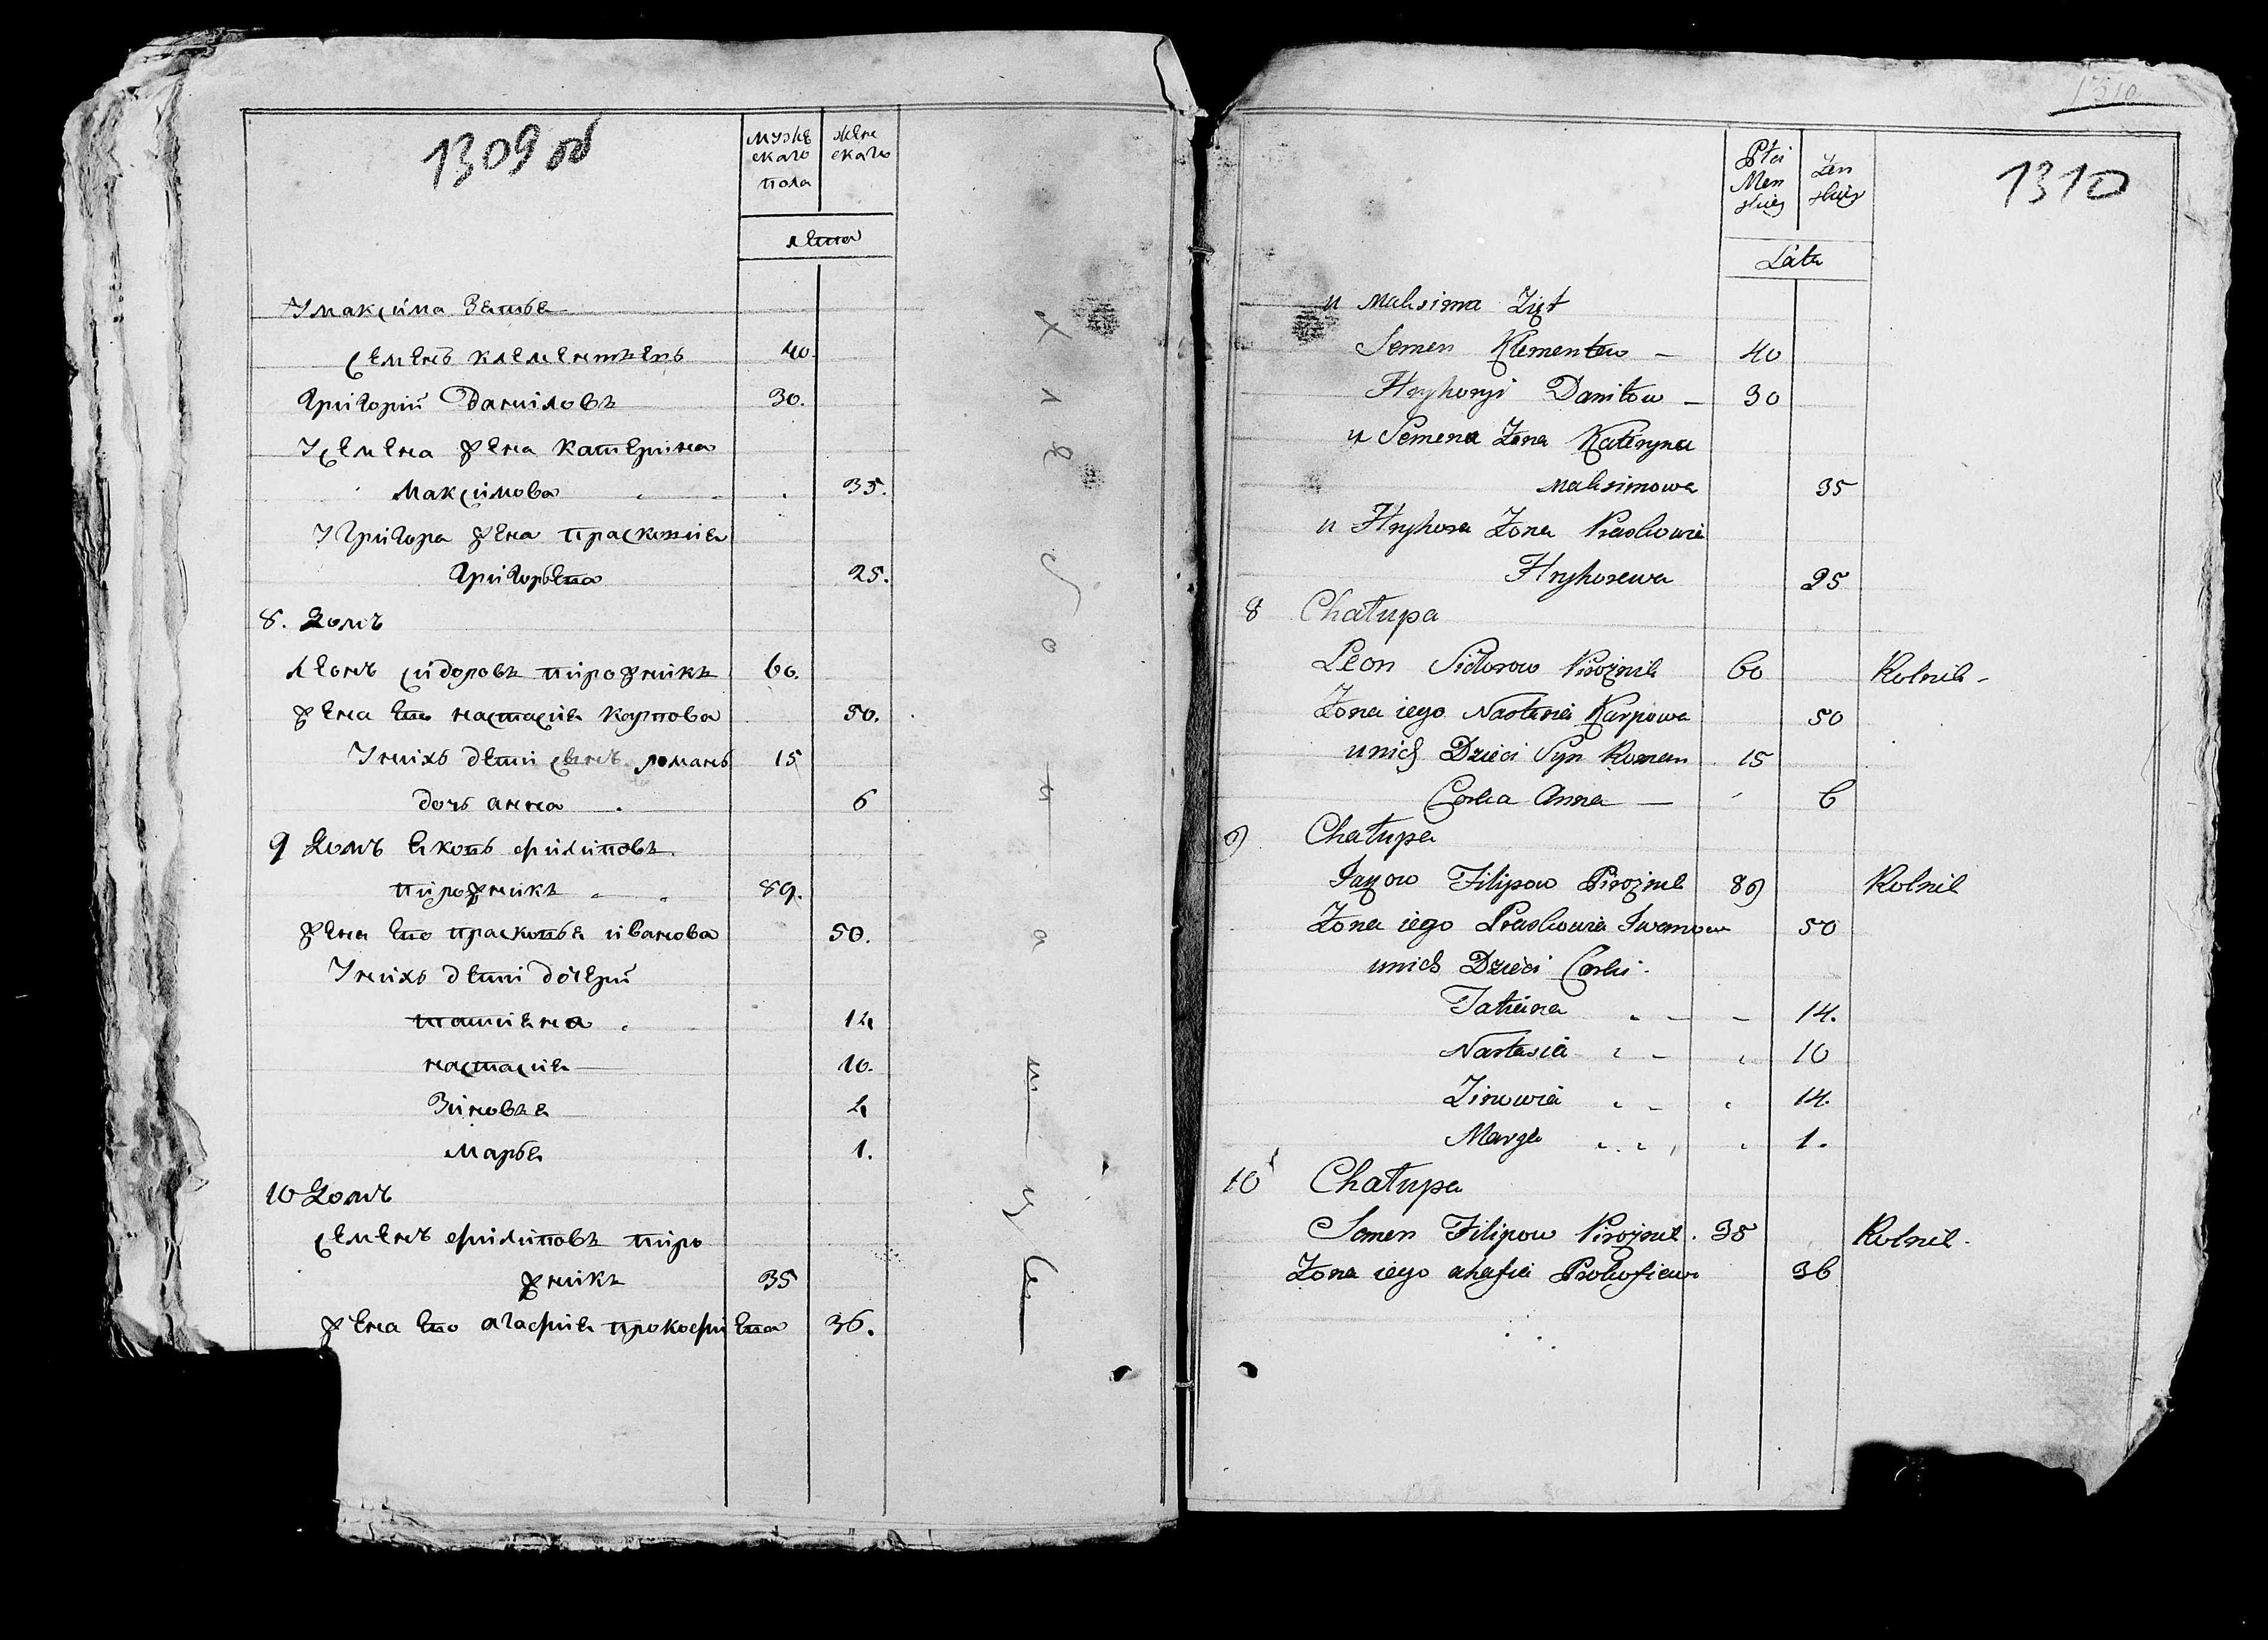 1309 об
мужескаго пола
женскаго
лета
У максима Зять
семенъ клементъевъ 40.
григорий Даниловъ 30.
У семена жена катерина
максимова 35.
У григора жена прасковия
григорьева 25.
8. Домъ
леонъ сидоровъ пирожникъ 60.
жена его настасия карпова 50.
У нихъ дети сынъ романъ 15
дочь анна 6
9 Домъ яковъ филиповъ
пирожникъ 89.
жена его прасковья иванова 50.
У нихъ дети дочери
татияна 14
настасия 10.
Зиновъя 4
Марья 1.
10 Домъ
семенъ филиповъ пиро
жникъ 35
жена его агафия прокофиева 36.
1310
1310
Płci Męskiej
Żenskiej
Lata
u Maksima Zięt
Semen Klementew — 40
Hryhoryi Daniłow — 30
u Semena Żona Kateryna
Maksimowa 35
u Hryhora Żona Praskowia
Hryhorewa 25
8 Chałupa
Leon Sidorow Pirożnik 60 Rolnik -
Żona iego Nastasia Karpowa 50
unich Dzieci Syn Roman 15
Corka Anna — 6
9 Chałupa
Jakow Filipow Pirożnik 89 Rolnik
Żona iego Praskowia Iwanowa 50
unich Dzieci Corki
Tatiana 14.
Nastasia 10
Zinowia 14.
Marya 1.
10 Chałupa
Semen Filipow Pirożnik. 35 Rolnik.
Żona iego ahafia Prokofiewa 36